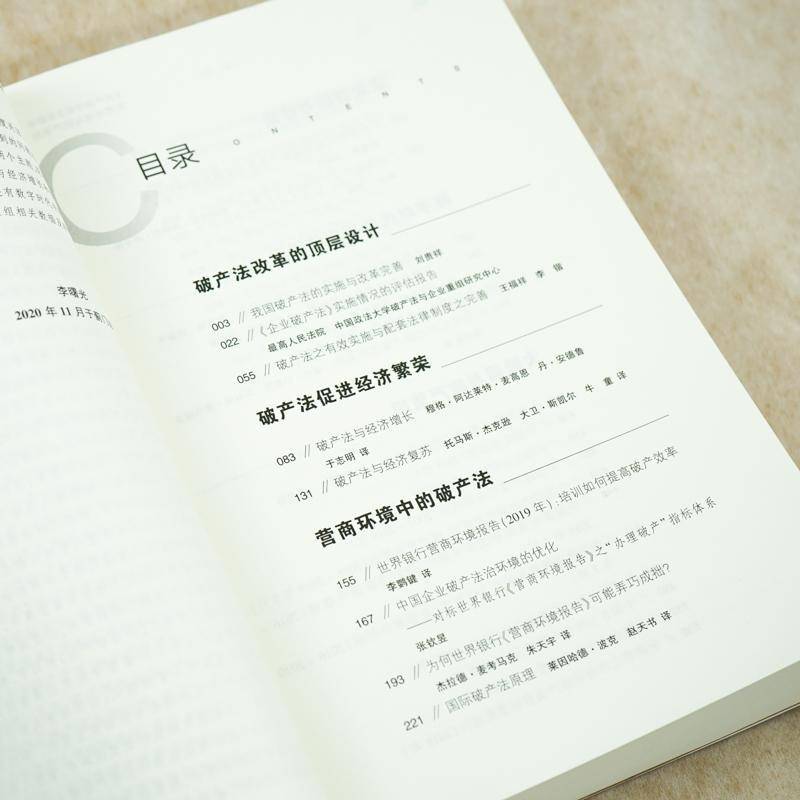 李曙光
2020 年 11 月于蓟门
目录
CONTENTS
破产法改革的顶层设计
003 // 我国破产法的实施与改革完善 刘贵祥
022 // 《企业破产法》实施情况的评估报告
最高人民法院 中国政法大学破产法与企业重组研究中心
055 // 破产法之有效实施与配套法律制度之完善 王福祥 李 锴
破产法促进经济繁荣
083 // 破产法与经济增长 穆格·阿达莱特·麦高恩 丹·安德鲁
于志明 译
131 // 破产法与经济复苏 托马斯·杰克逊 大卫·斯凯尔 牛 童 译
营商环境中的破产法
155 // 世界银行营商环境报告(2019 年):培训如何提高破产效率
李鹦键 译
167 // 中国企业破产法治环境的优化
——对标世界银行《营商环境报告》之“办理破产”指标体系
张钦昱
193 // 为何世界银行《营商环境报告》可能弄巧成拙?
杰拉德·麦考马克 朱天宇 译
221 // 国际破产法原理 莱因哈德·波克 赵天书 译